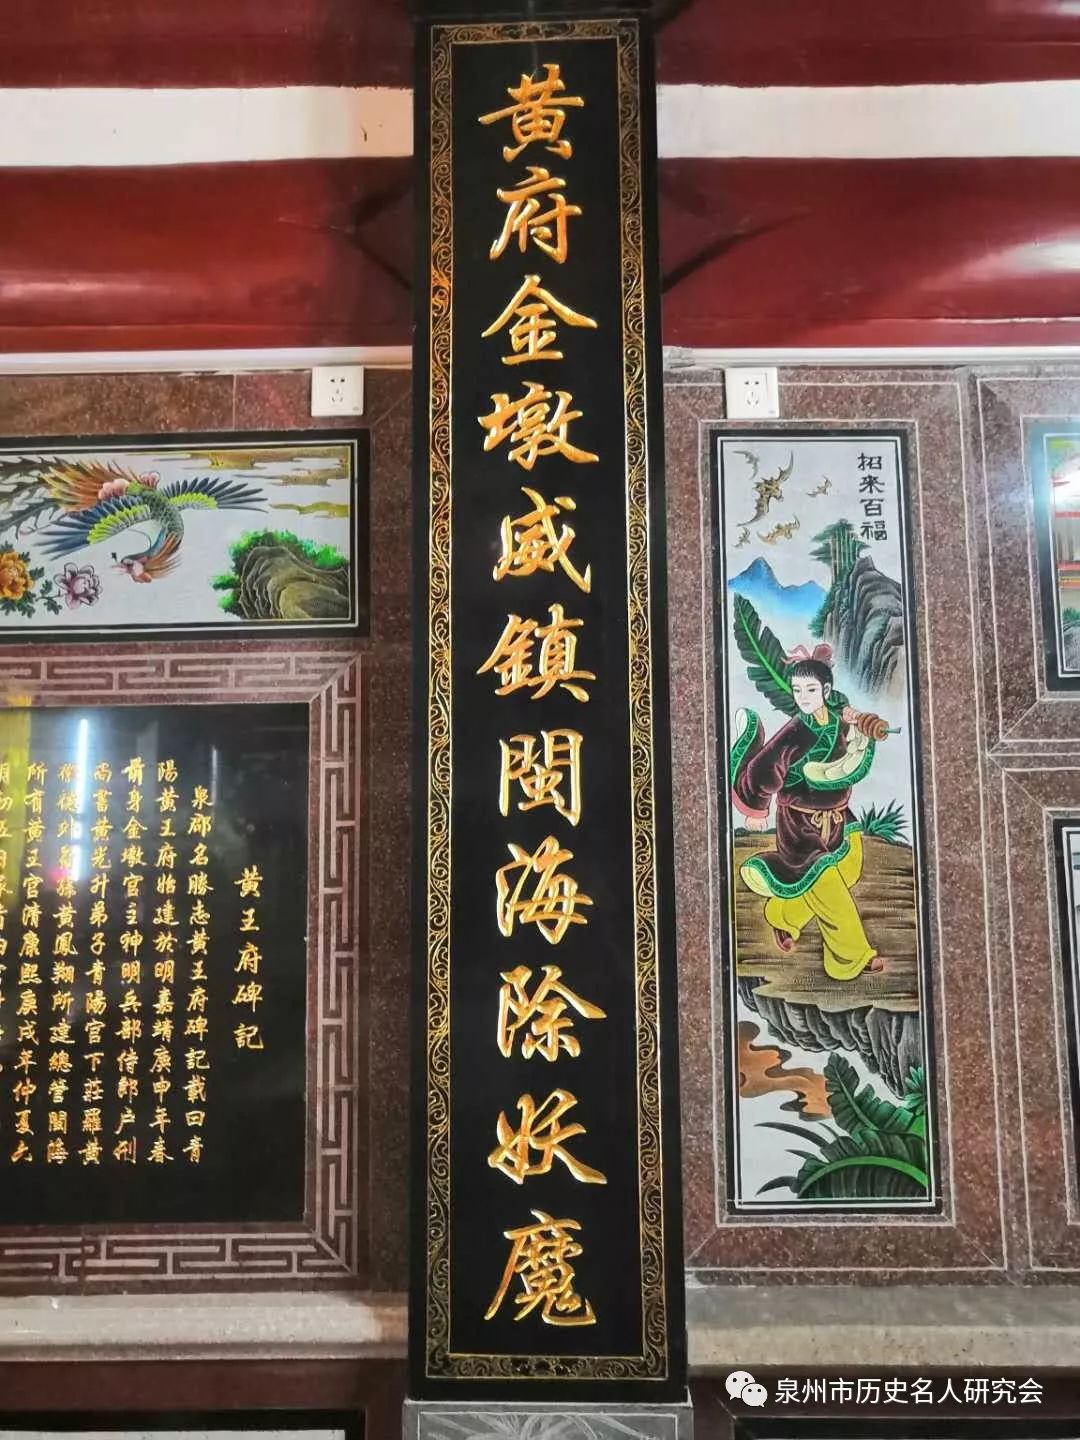 黄府金墩威鎮閩海除妖魔
招來百福
黄王府碑記
泉郡名勝志黄王府碑記載曰青
陽黄王府始建於明嘉靖庚申年春
前身金墩官主神明兵部侍郎户刑
尚書黄光升弟子青陽官下莊羅黄
孫黄鳳翔所建總管閩
所有黄王官清康熙庚戌年仲夏
泉州市历史名人研究会